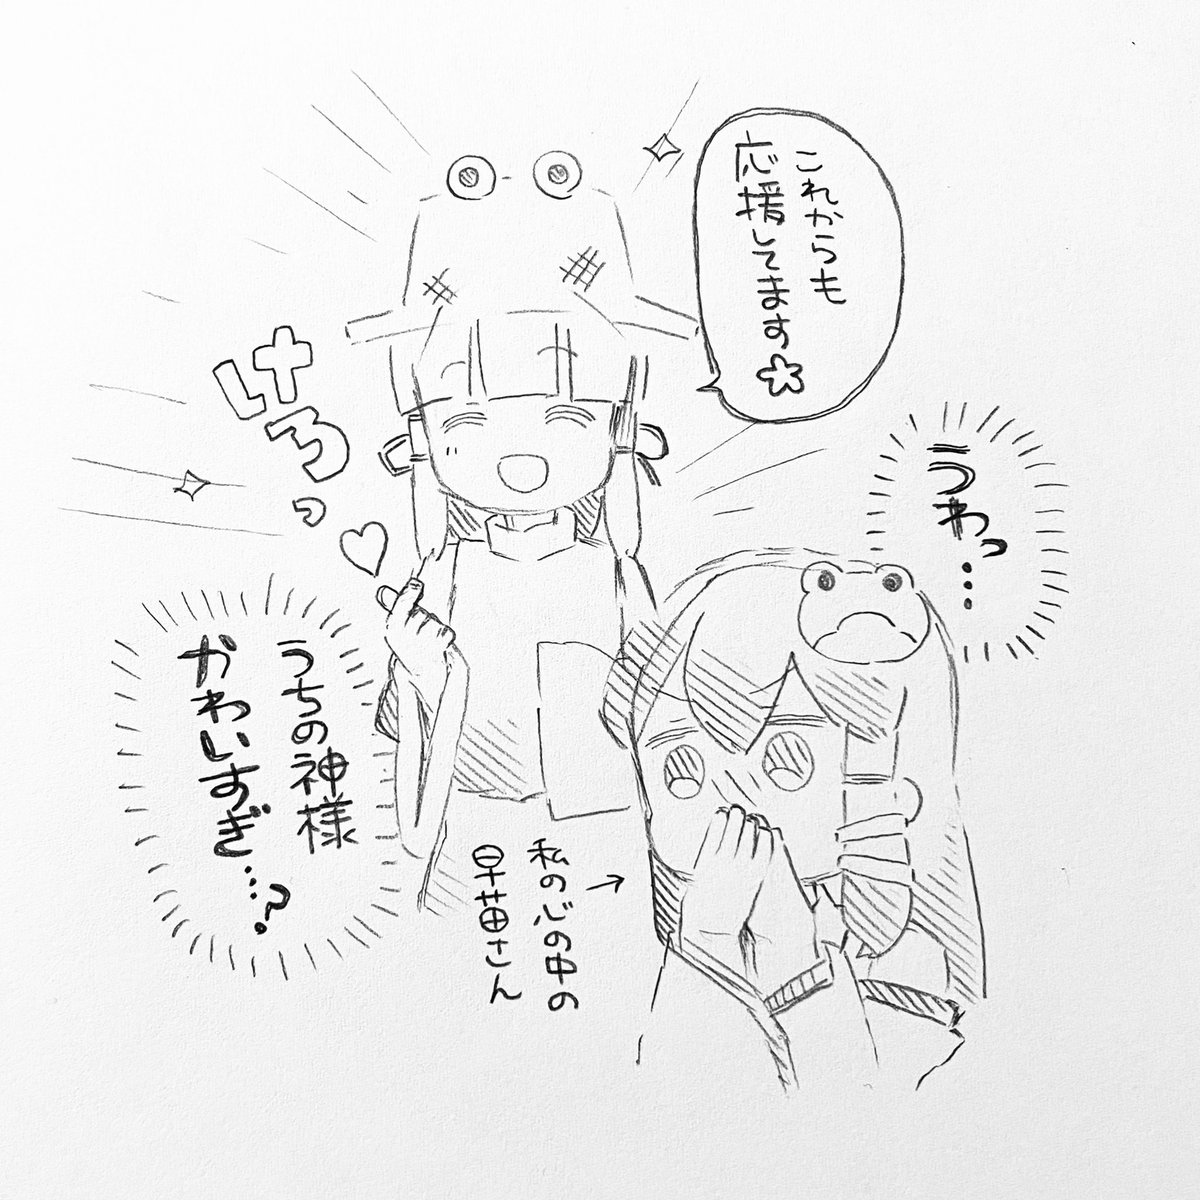 これからも
応援してます☆
けろっ
うわっ…
うちの神様
かわいすぎ…?
私の心の中の
早苗さん
→